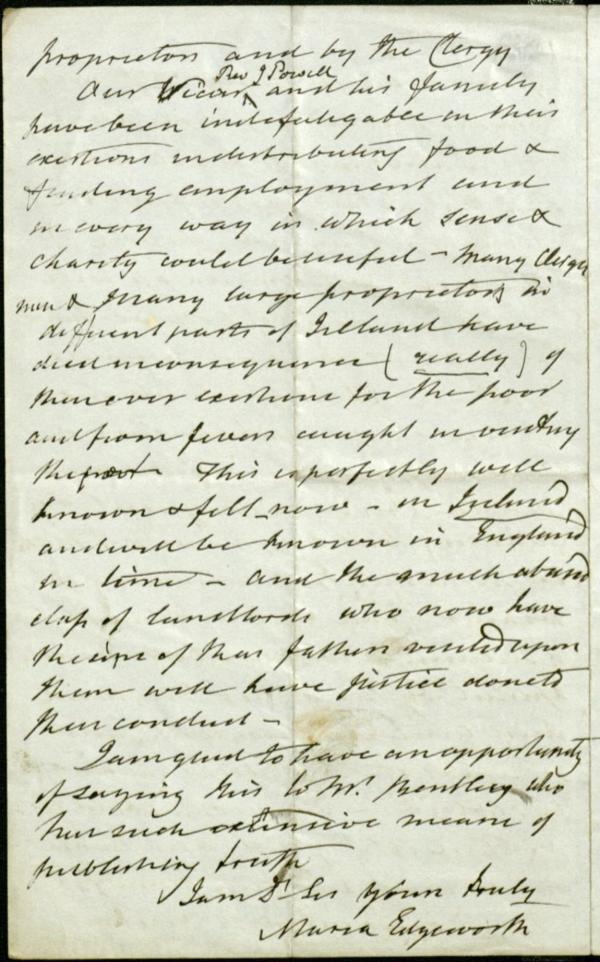 proprietors and by the Clergy
Rev J Powell
Our Vicar ^ and his family
have been indefatigable in their
exertions in distributing food &
finding employment and
in every way in which sense &
charity could be useful – Many Clergy
men & many large proprietors in
different parts of Ireland have
died in consequence (really) of
their over exertions for the poor
and from fevers caught in visiting
the poor This is perfectly well
known & felt now – in Ireland
and will be known in England
in time – and the much abused
class of landlords who now have
the sins of their fathers visited upon
them will have justice done to
their conduct –
I am glad to have an opportunity
of saying this to Mr. Bentley who
has such extensive means of
publishing truth
I am Dr Sir yours truly
Maria Edgeworth